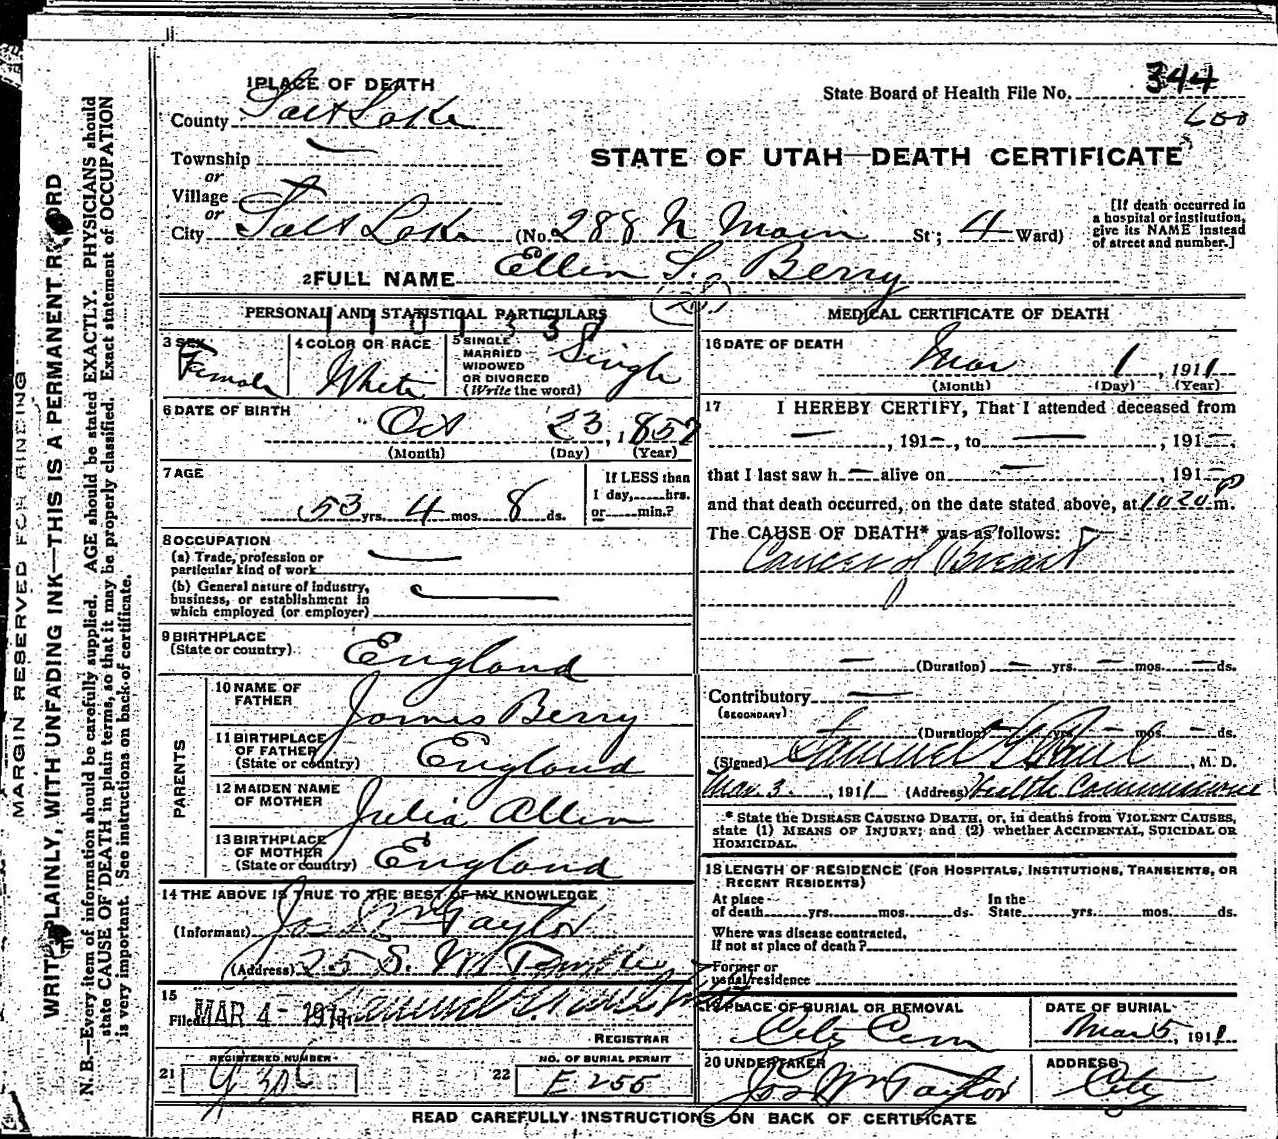 MARGIN RESERVED FOR BINDING
WRITE PLAINLY, WITH UNFADING INK—THIS IS A PERMANENT RECORD
N. B.—Every item of information should be carefully supplied. AGE should be stated EXACTLY. PHYSICIANS should
state CAUSE OF DEATH in plain terms, so that it may be properly classified. Exact statement of OCCUPATION
is very important. See instructions on back of certificate.
1 PLACE OF DEATH
County Salt Lake
Township
or
Village
or
City Salt Lake (No. 288 N Main St; 4 Ward)
State Board of Health File No. 344
600
STATE OF UTAH—DEATH CERTIFICATE
[If death occurred in
a hospital or institution,
give its NAME instead
of street and number.]
2 FULL NAME Ellen S. Berry
PERSONAL AND STATISTICAL PARTICULARS
3 SEX Female
4 COLOR OR RACE White
5 SINGLE
MARRIED
WIDOWED
OR DIVORCED
(Write the word)
Single
6 DATE OF BIRTH
Oct 23, 1857
(Month) (Day) (Year)
7 AGE
53 yrs. 4 mos. 8 ds.
If LESS than
1 day, hrs.
or min.?
8 OCCUPATION
(a) Trade, profession or
particular kind of work —
(b) General nature of industry,
business, or establishment in
which employed (or employer) —
9 BIRTHPLACE
(State or country) England
PARENTS
10 NAME OF
FATHER James Berry
11 BIRTHPLACE
OF FATHER
(State or country) England
12 MAIDEN NAME
OF MOTHER Julia Allen
13 BIRTHPLACE
OF MOTHER
(State or country) England
14 THE ABOVE IS TRUE TO THE BEST OF MY KNOWLEDGE
(Informant) Jos Wm Taylor
(Address) 25 S. W. Temple
15
Filed MAR 4 - 1911
REGISTRAR
21 REGISTERED NUMBER
22 NO. OF BURIAL PERMIT
E 255
MEDICAL CERTIFICATE OF DEATH
16 DATE OF DEATH
Mar 1, 1911
(Month) (Day) (Year)
17 I HEREBY CERTIFY, That I attended deceased from
—, 191—, to —, 191—,
that I last saw h— alive on —, 191—
and that death occurred, on the date stated above, at 10 20 P m.
The CAUSE OF DEATH* was as follows:
Cancer of Breast
— (Duration) — yrs. — mos. — ds.
Contributory —
(SECONDARY)
(Duration) yrs. — mos. — ds.
(Signed) Samuel G. Paul, M. D.
Mar. 3, 1911 (Address) Health Commissioner
* State the DISEASE CAUSING DEATH, or, in deaths from VIOLENT CAUSES,
state (1) MEANS OF INJURY; and (2) whether ACCIDENTAL, SUICIDAL OR
HOMICIDAL.
18 LENGTH OF RESIDENCE (FOR HOSPITALS, INSTITUTIONS, TRANSIENTS, OR
RECENT RESIDENTS)
At place
of death yrs. mos. ds.
In the
State yrs. mos. ds.
Where was disease contracted,
if not at place of death?
Former or
usual residence
19 PLACE OF BURIAL OR REMOVAL
City Cem
DATE OF BURIAL
Mar 5, 1911
20 UNDERTAKER
Jos Wm Taylor
ADDRESS
City
READ CAREFULLY INSTRUCTIONS ON BACK OF CERTIFICATE